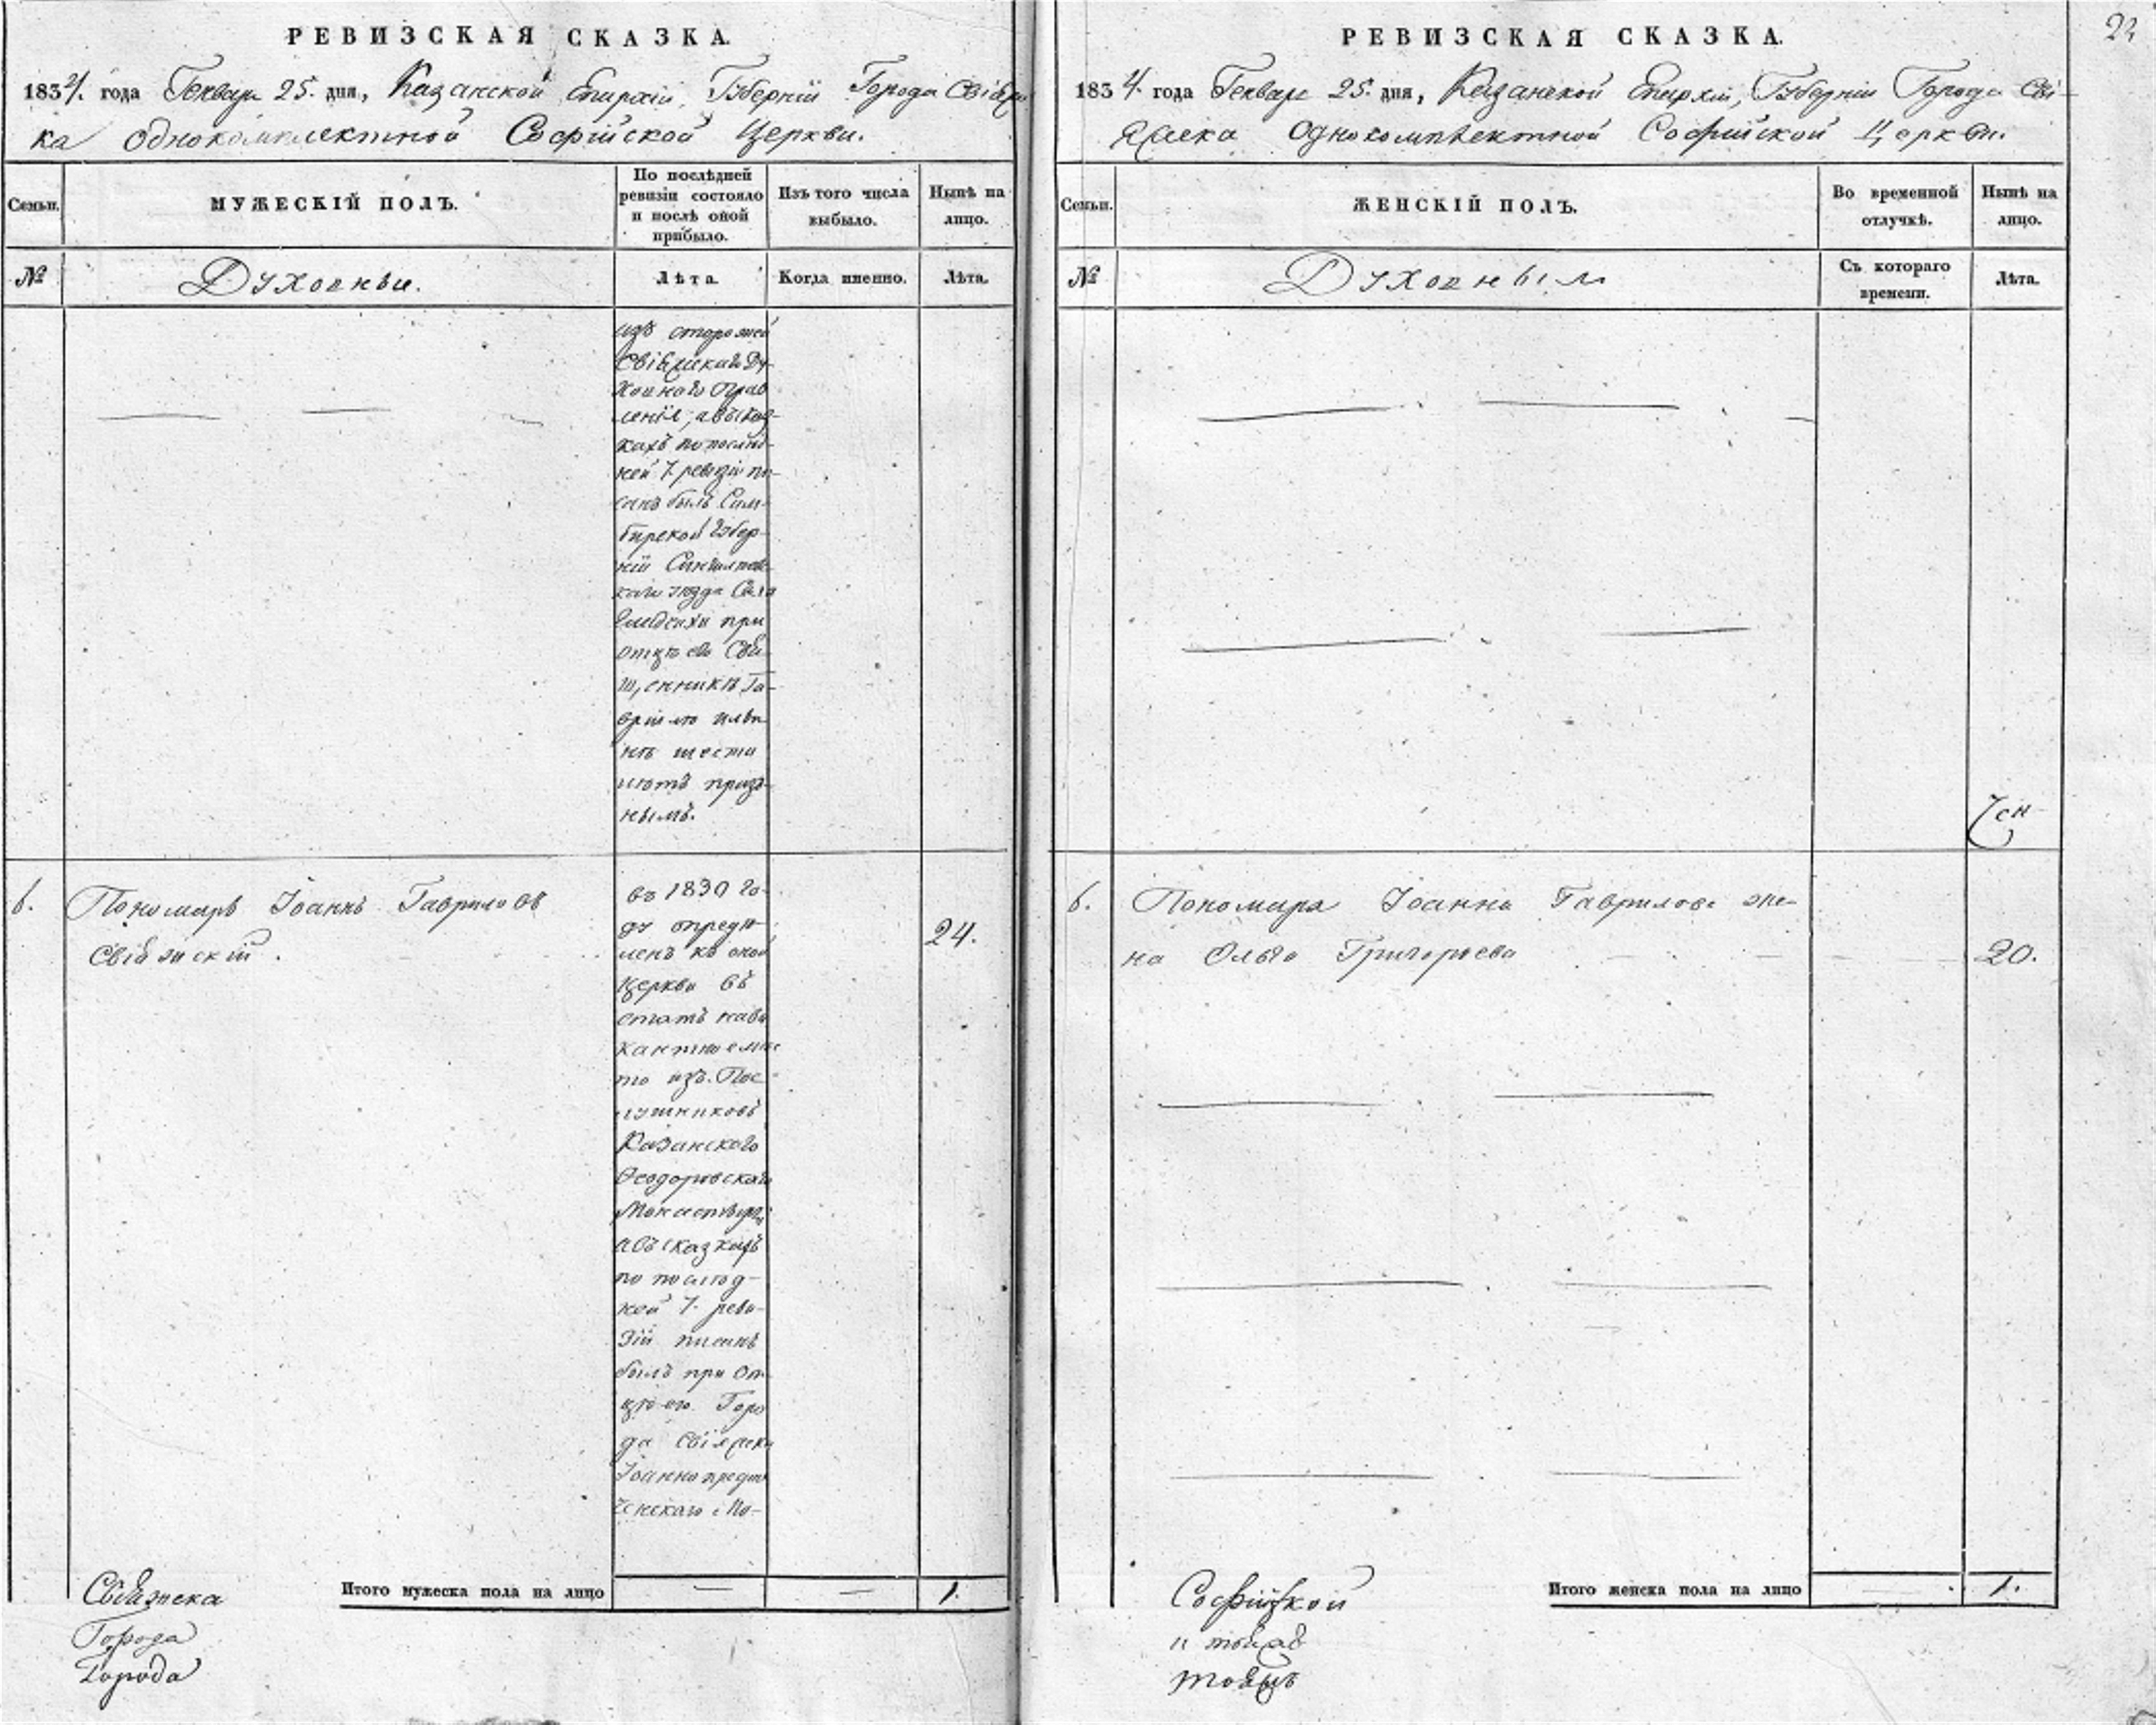 РЕВИЗСКАЯ СКАЗКА.
1834. года Генваря 25. дня, Казанской Епархіи, Губерніи Города Свіяжс
ка однокомплектной Софійской Церкви.
Семьи.
МУЖЕСКІЙ ПОЛЪ.
По послѣдней
ревизіи состояло
и послѣ оной
прибыло.
Изъ того числа
выбыло.
Нынѣ на
лицо.
№
Духовныи.
Лѣта.
Когда именно.
Лѣта.
изъ сторожей
Свіяжскаго Ду-
ховнаго Прав
ленія; а въ сказ-
кахъ по послѣд-
ней 7. ревизіи пи-
санъ былъ Сим-
бирской Губер-
ніи
каго уѣзда Села
при
отцѣ его Свя-
щенникѣ Га-
вріилѣ
нѣ шести
лѣтъ
нымъ.
6.
Пономарь Іоаннъ Гавриловъ
Свіязскій.
въ 1830 го-
ду опредѣ-
ленъ къ оной
Церкви въ
штатъ на ва
кантное мѣс
то изъ Пос-
лушниковъ
Казанскаго
Ѳеодоровскаго
Монастыря,
а въ сказкахъ
по послѣд-
ней 7. реви-
зіи писанъ
былъ при От-
цѣ его Горо
да Свіяжска
Іоанно предте
ченскаго По-
24.
Итого мужеска пола на лицо
1.
Свіязска
Города
Города
РЕВИЗСКАЯ СКАЗКА.
22
1834. года Генваря 25. дня, Казанской Епархіи, Губерніи Города Сві-
яжска Однокомплектной Софійской Церкви.
Семьи.
ЖЕНСКІЙ ПОЛЪ.
Во временной
отлучкѣ.
Нынѣ на
лицо.
№
Духовныя
Съ котораго
времени.
Лѣта.
6.
Пономаря Іоанна Гаврилова же-
на Ольга Григорьева
20.
Итого женска пола на лицо
1.
Софійской